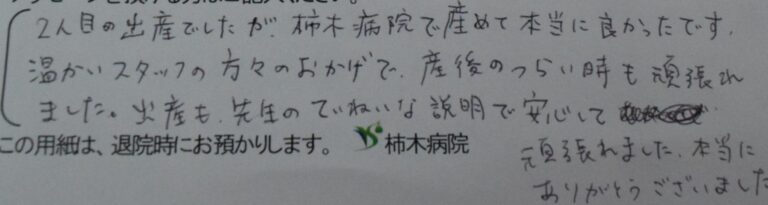 2人目の出産でしたが、柿木病院で産めて本当に良かったです。
温かいスタッフの方々のおかげで、産後のつらい時も頑張れ
ました。出産も、先生のていねいな説明で安心して
頑張れました、本当に
ありがとうございました
この用紙は、退院時にお預かりします。 柿木病院